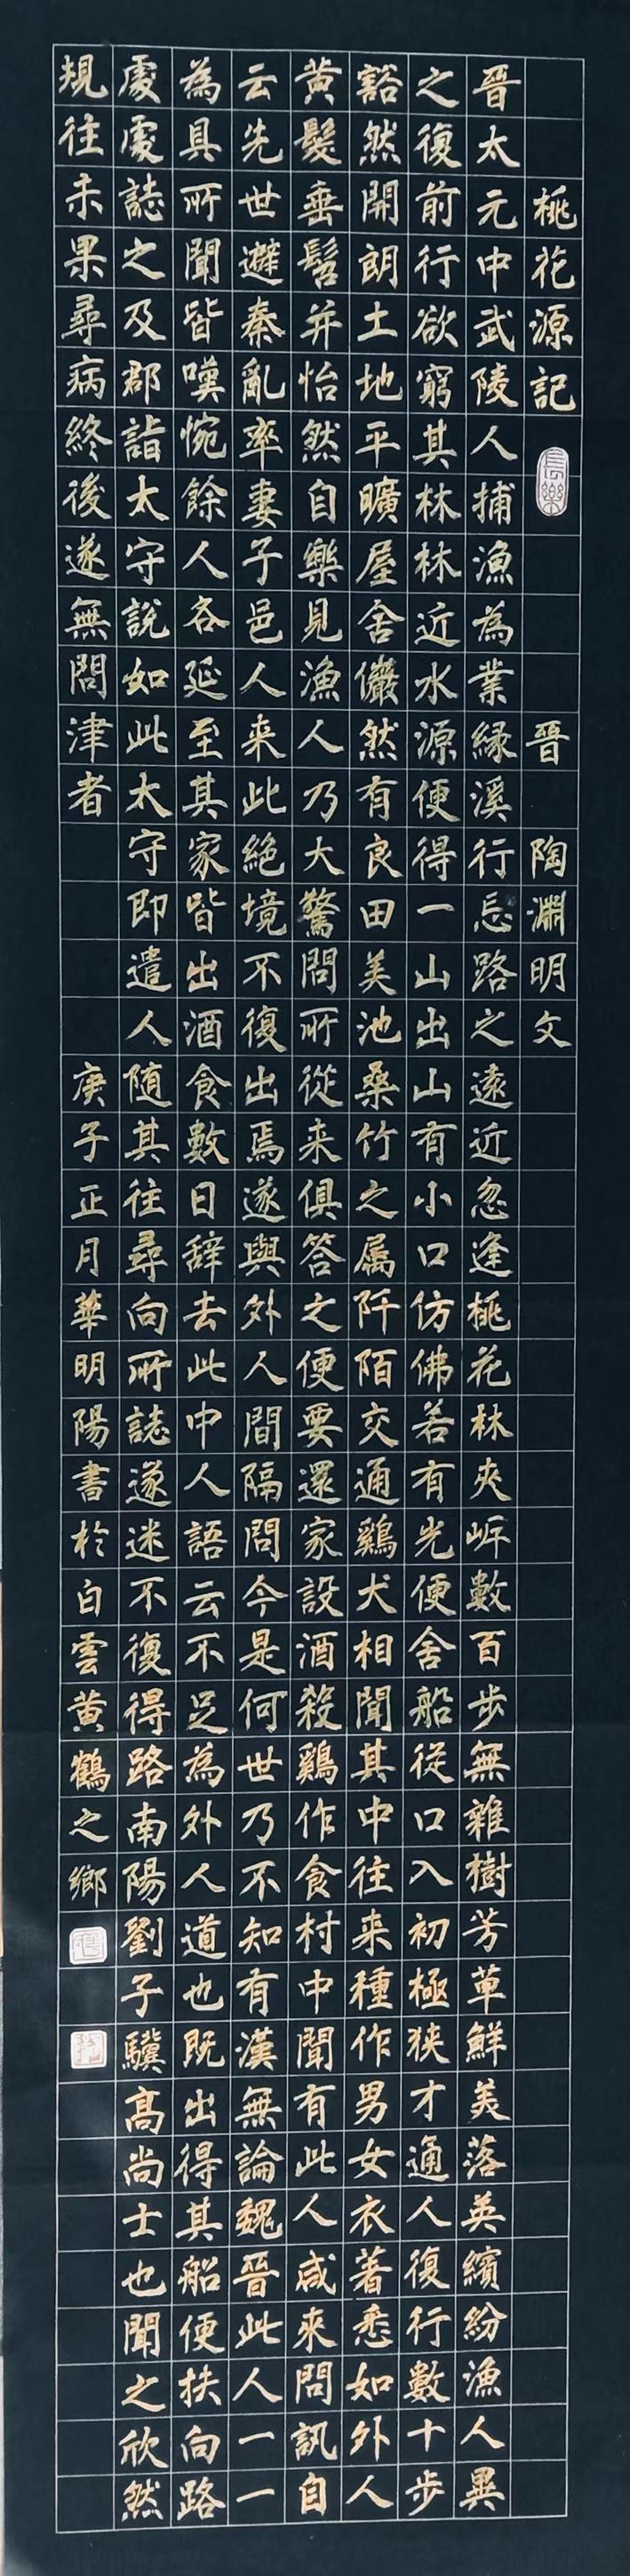 桃花源記 長樂 晉 陶淵明文
晉太元中武陵人捕漁為業緣溪行忘路之遠近忽逢桃花林夾岍數百步無雜樹芳草鮮美落英繽紛漁人異
之復前行欲窮其林林近水源便得一山出山有小口仿佛若有光便舍船從口入初極狹才通人復行數十步
豁然開朗土地平曠屋舍儼然有良田美池桑竹之屬阡陌交通鷄犬相聞其中往来種作男女衣著悉如外人
黃髮垂髫并怡然自樂見漁人乃大驚問所從来俱答之便要還家設酒殺鷄作食村中聞有此人咸來問訊自
云先世避秦亂率妻子邑人来此絕境不復出焉遂與外人間隔問今是何世乃不知有漢無論魏晉此人一一
為具所聞皆嘆惋餘人各延至其家皆出酒食數日辭去此中人語云不足為外人道也既出得其船便扶向路
處處誌之及郡詣太守說如此太守即遣人随其往尋向所誌遂迷不復得路南陽劉子驥高尚士也聞之欣然
規往未果尋病終後遂無問津者 庚子正月華明陽書於白雲黃鶴之鄉